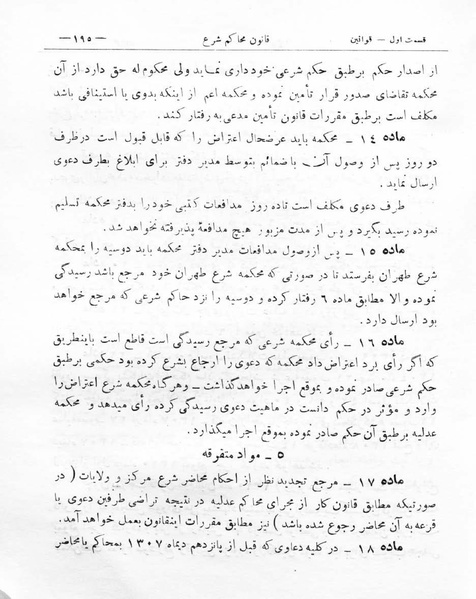 قسمت اول — قوانین قانون محاکم شرع —۱۹۵—
از اصدار حکم برطبق حکم شرعی خودداری نماید ولی محکوم له حق دارد از آن
محکمه تقاضای صدور قرار تأمین نموده و محکمه اعم از اینکه بدوی یا استینافی باشد
مکلف است برطبق مقررات قانون تأمین مدعی به رفتار کند.
ماده ۱۴ — محکمه باید عرضحال اعتراض را که قابل قبول است درظرف
دو روز پس از وصول آن با ضمائم بتوسط مدیر دفتر برای ابلاغ بطرف دعوی
ارسال نماید.
طرف دعوی مکلف است تاده روز مدافعات کتبی خودرا بدفتر محکمه تسلیم
نموده رسید بگیرد و پس از مدت مزبور هیچ مدافعهٔ پذیرفته نخواهد شد.
ماده ۱۵ — پس ازوصول مدافعات مدیر دفتر محکمه باید دوسیه را بمحکمه
شرع طهران بفرستد تا در صورتی که محکمه شرع طهران خود مرجع باشد رسیدگی
نموده و الا مطابق ماده ۶ رفتار کرده و دوسیه را نزد حاکم شرعی که مرجع خواهد
بود ارسال دارد.
ماده ۱۶ — رأی محکمه شرعی که مرجع رسیدگی است قاطع است باینطریق
که اگر رأی برد اعتراض داد محکمه که دعوی را ارجاع بشرع کرده بود حکمی برطبق
حکم شرعی صادر نموده و بموقع اجرا خواهدگذاشت — وهرگاه محکمه شرع اعتراض را
وارد و مؤثر در حکم دانست در ماهیت دعوی رسیدگی کرده رأی میدهد و محکمه
عدلیه برطبق آن حکم صادر نموده بموقع اجرا میگذارد.
۵ — مواد متفرقه
ماده ۱۷ — مرجع تجدید نظر از احکام محاضر شرع مرکز و ولایات ( در
صورتیکه مطابق قانون کار از مجرای محاکم عدلیه در نتیجه تراضی طرفین دعوی یا
قرعه به آن محاضر رجوع شده باشد ) نیز مطابق مقررات اینقانون بعمل خواهد آمد.
ماده ۱۸ — در کلیه دعاوی که قبل از پانزدهم دیماه ۱۳۰۷ بمحاکم یا محاضر